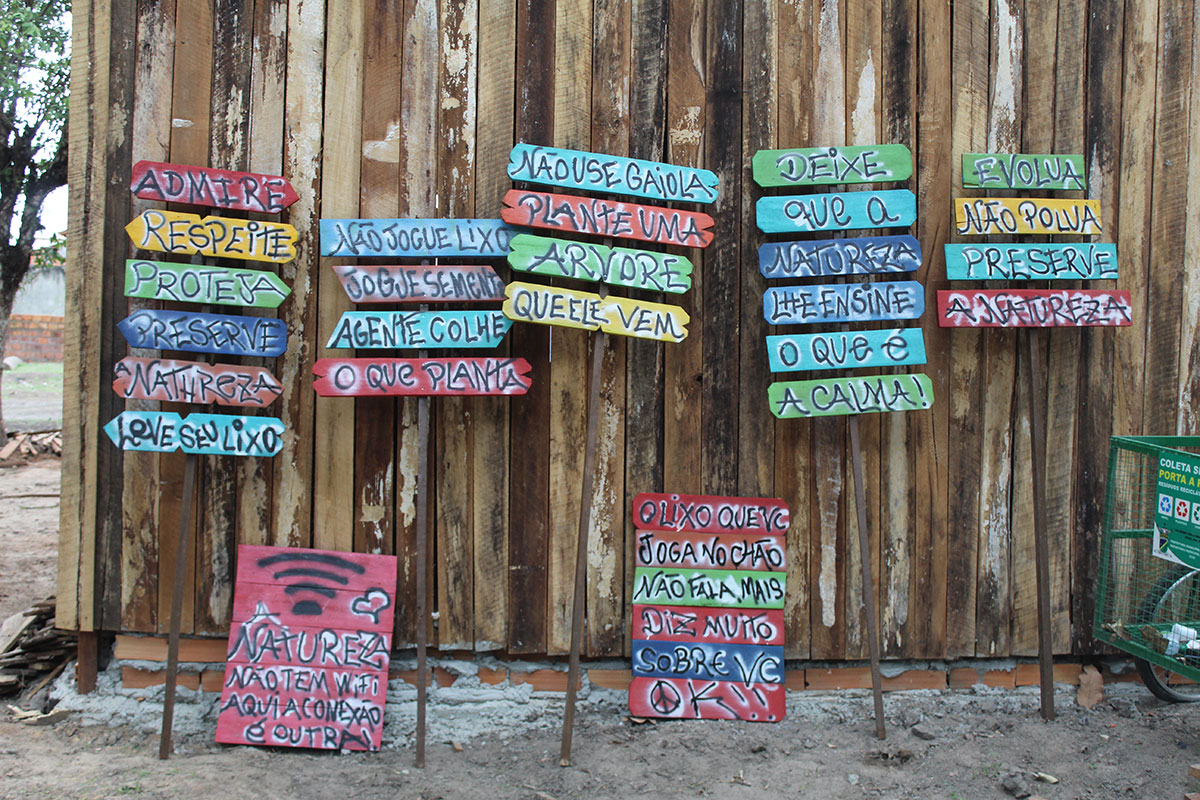 ADMIRE
RESPEITE
PROTEJA
PRESERVE
A NATUREZA
LEVE SEU LIXO
NÃO JOGUE LIXO
JOGUE SEMENTE
AGENTE COLHE
O QUE PLANTA
NÃO USE GAIOLA
PLANTE UMA
ARVORE
QUE ELE VEM
DEIXE
QUE A
NATUREZA
LHE ENSINE
O QUE É
A CALMA!
EVOLUA
NÃO POLUA
PRESERVE
A NATUREZA
A
NATUREZA
NÃO TEM WIFI
AQUI A CONEXÃO
É OUTRA!
O LIXO QUE VC
JOGA NO CHÃO
NÃO FALA, MAS
DIZ MUITO
SOBRE VC
OK!!
COLETA
PORTA A